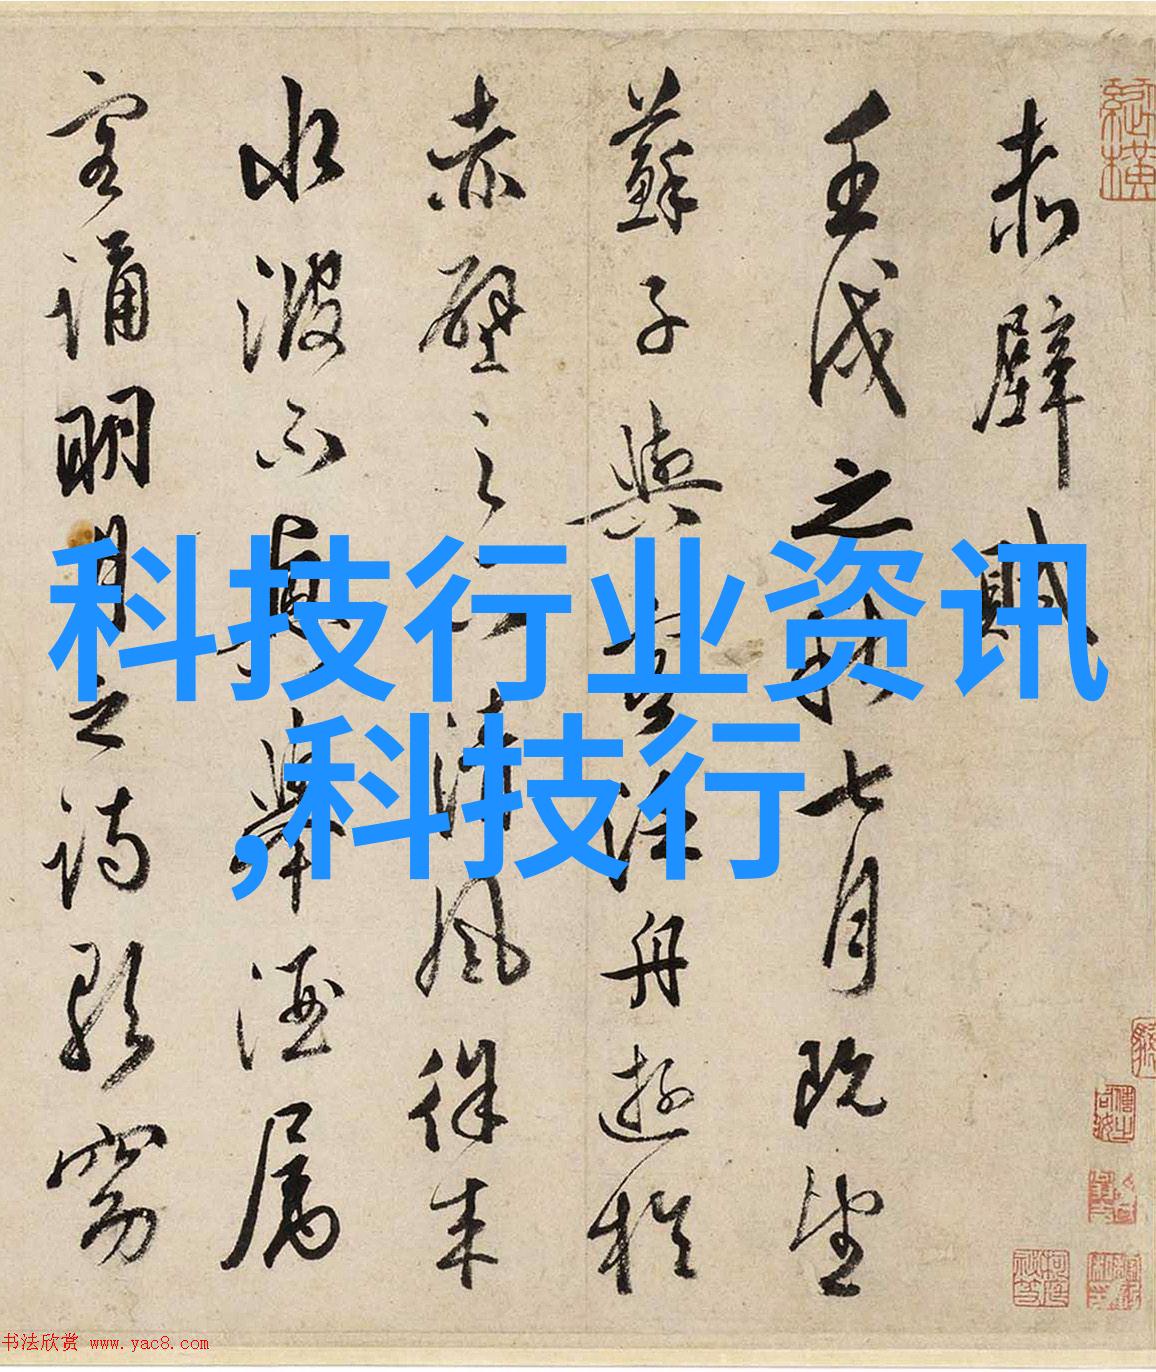 赤壁賦
壬戌之秋七月既望
蘇子與客泛舟遊於
赤壁之下清風徐來
水波不興舉酒屬
客誦明月之詩歌窈
科技行业资讯
,科技行
书法欣赏 www.yac8.com